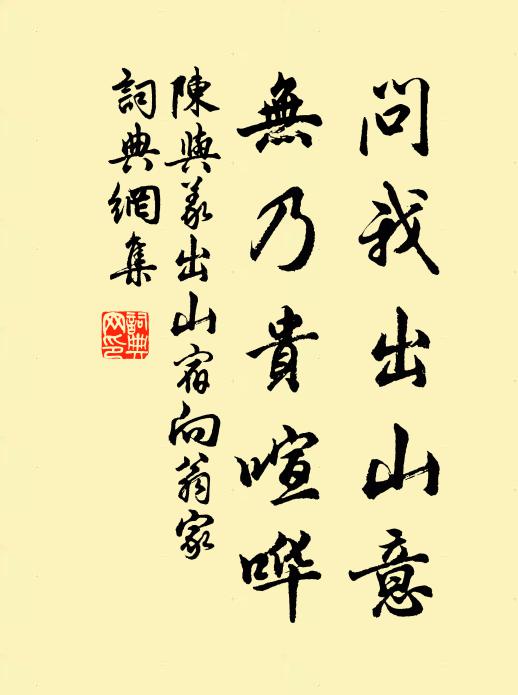 问我出山意
無乃貴喧哗
陳與義出山宿向翁家
詞典網集
詞典網印